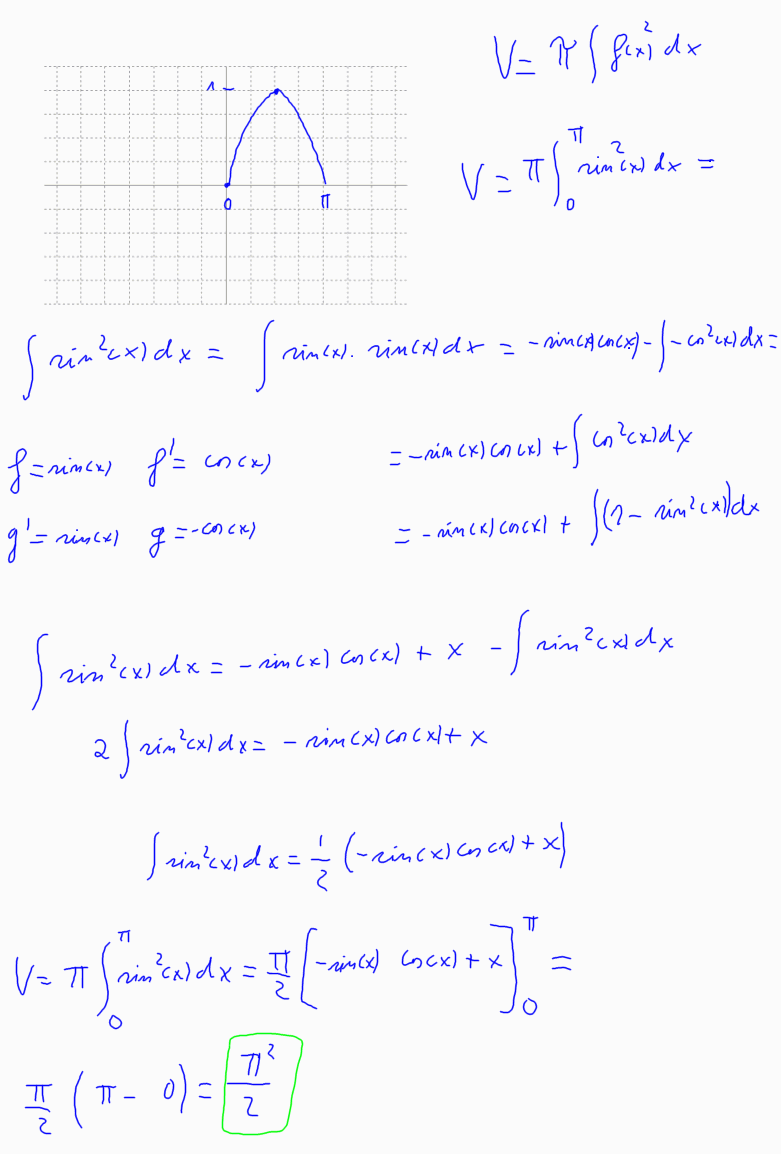 V = π ∫ f(x)² dx
1
0 π
V = π ∫₀^π sin²(x) dx =
∫ sin²(x) dx = ∫ sin(x) . sin(x) dx = - sin(x) cos(x) - ∫ - cos²(x) dx =
f = sin(x) f' = cos(x) = - sin(x) cos(x) + ∫ cos²(x) dx
g' = sin(x) g = - cos(x) = - sin(x) cos(x) + ∫ (1 - sin²(x)) dx
∫ sin²(x) dx = - sin(x) cos(x) + x - ∫ sin²(x) dx
2 ∫ sin²(x) dx = - sin(x) cos(x) + x
∫ sin²(x) dx = 1/2 (- sin(x) cos(x) + x)
V = π ∫₀^π sin²(x) dx = π/2 [- sin(x) cos(x) + x]₀^π =
π/2 (π - 0) = π²/2